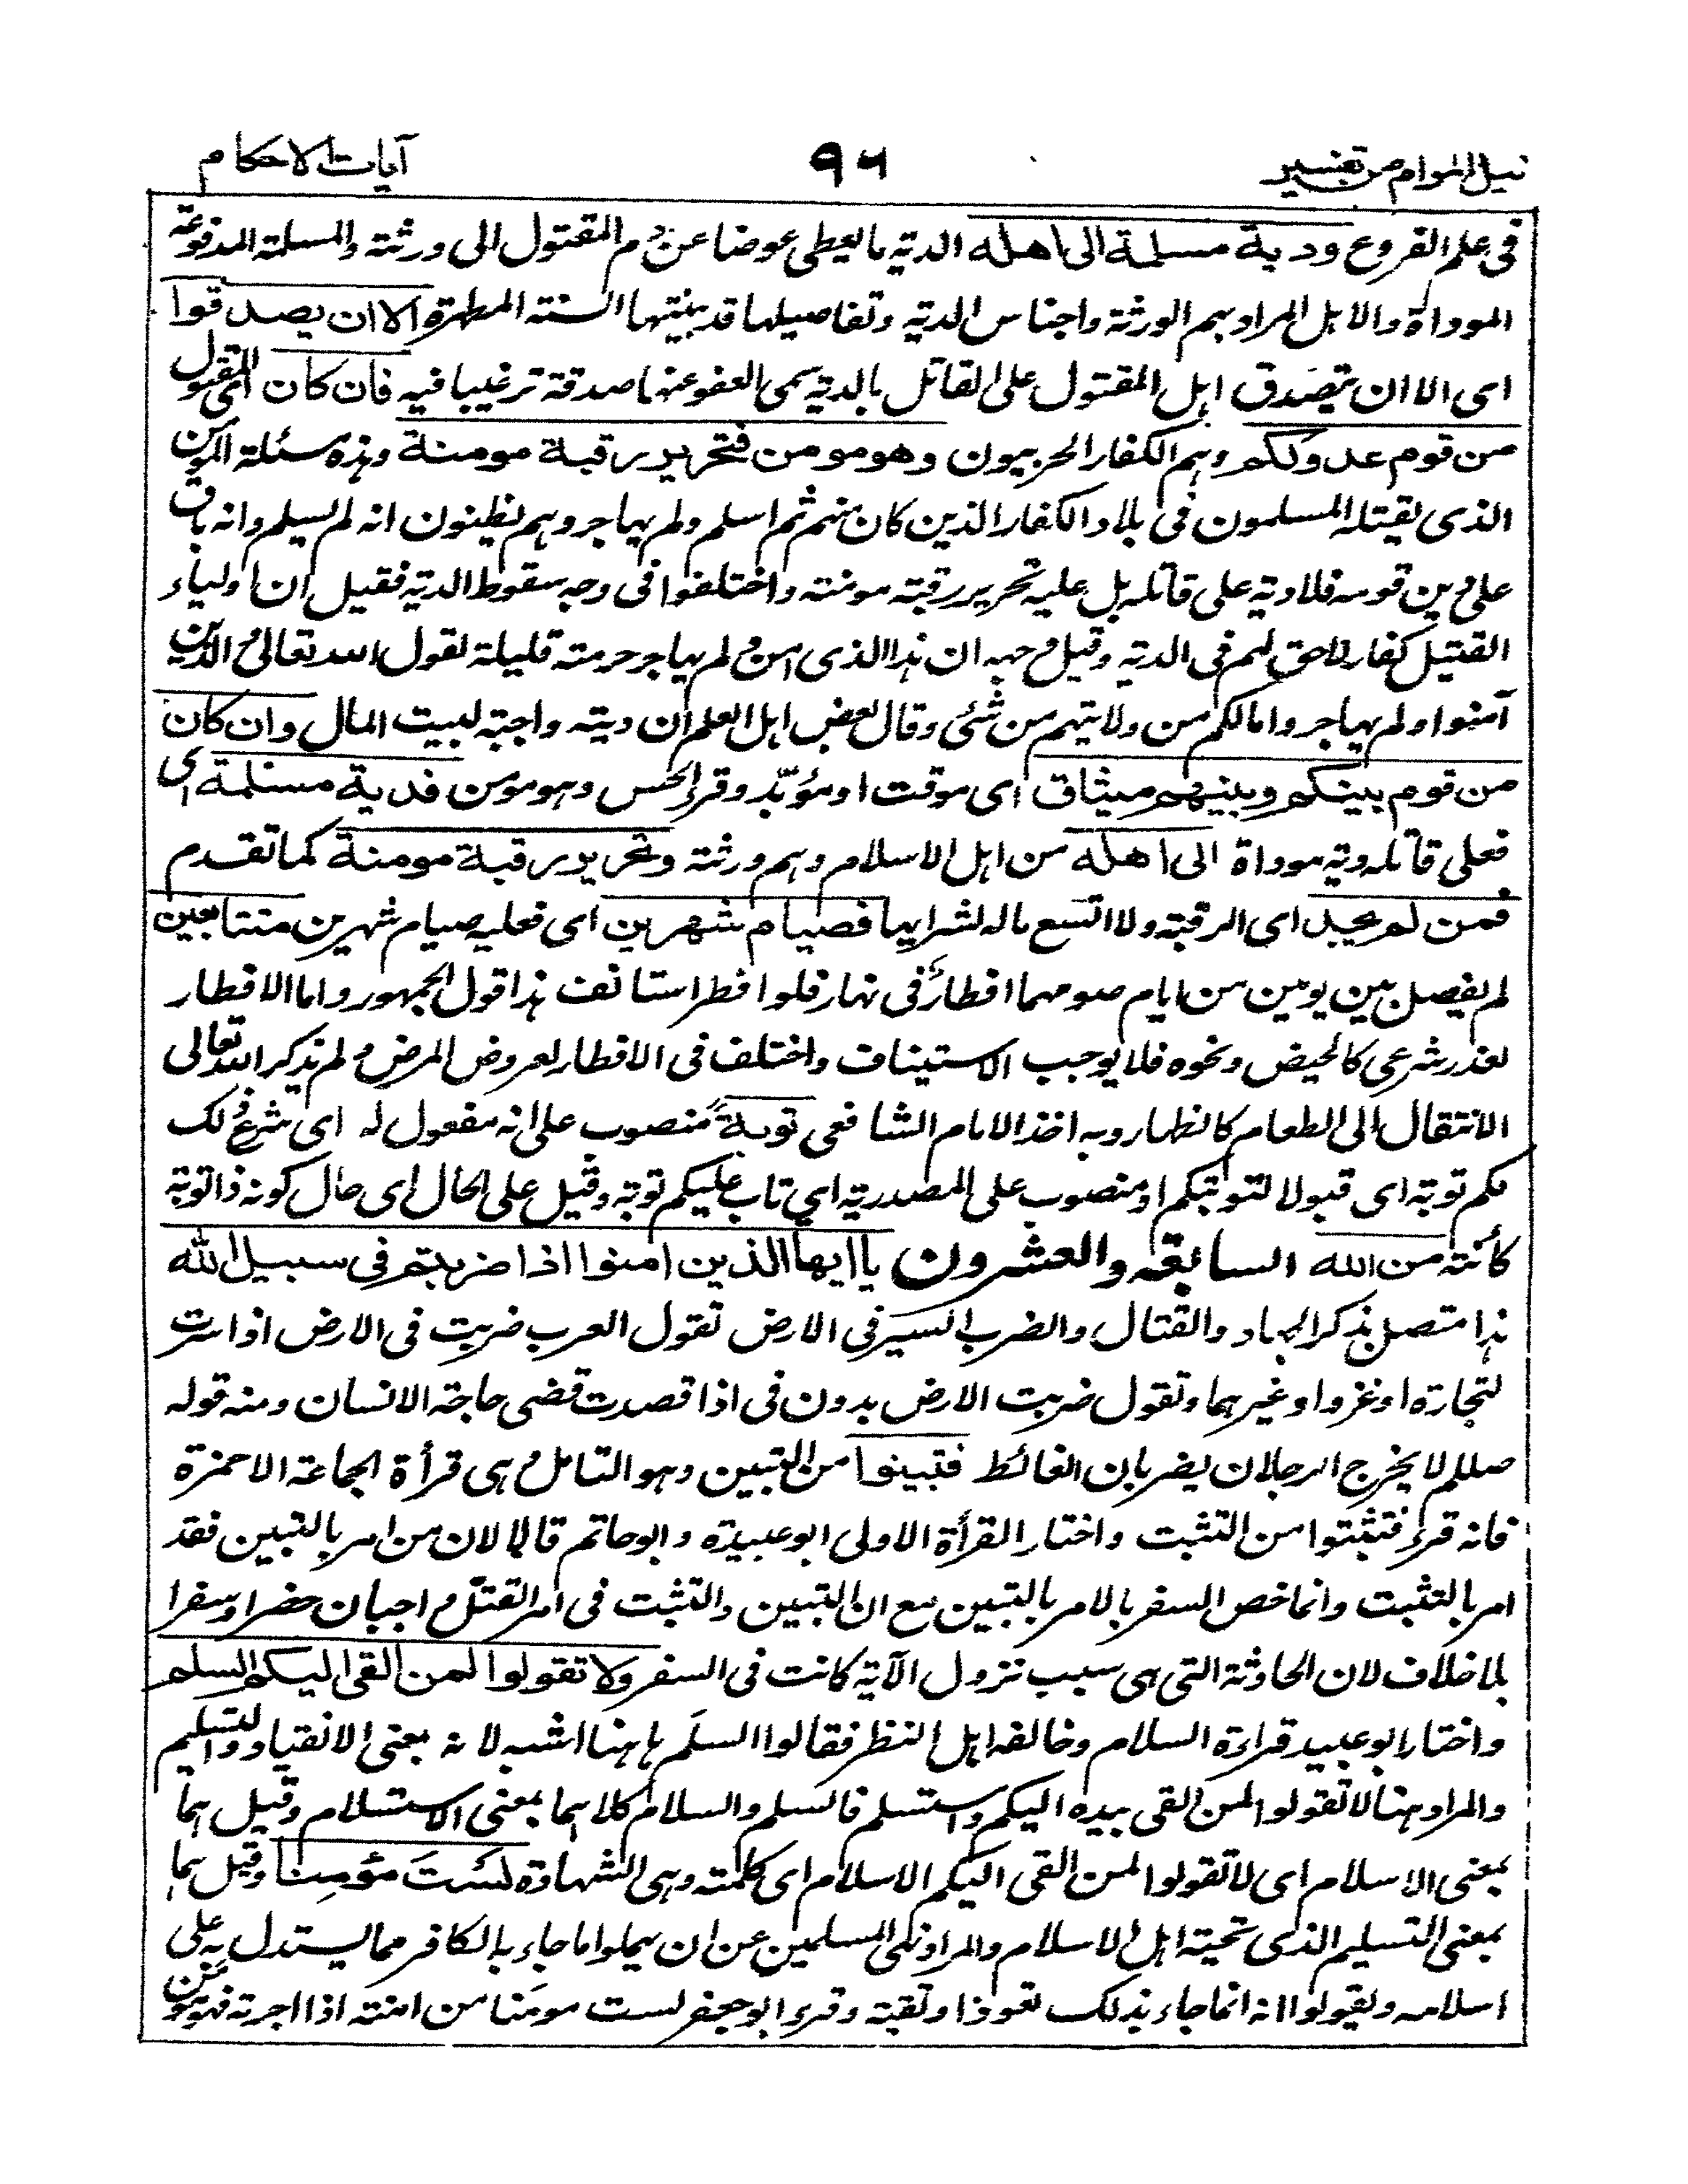 نيل المرام من تفسير ٩٦ آيات الاحكام
فى علم الفروع ودية مسلمة الى اهله الدية ما يعطى عوضا عن دم المقتول الى ورثته والمسلمة المدفوعة
الموداة والاهل المراد بهم الورثة واجناس الدية وتفاصيلها قد بينتها السنة المطهرة الا ان يصدقوا
اى الا ان يتصدق اهل المقتول على القاتل بالدية سمى العفو عنها صدقة ترغيبا فيه فان كان اى المقتول
من قوم عدو لكم وهم الكفار الحربيون وهو مومن فتحرير رقبة مومنة وهذه مسئلة المومن
الذى يقتله المسلمون فى بلاد الكفار الذين كان منهم ثم اسلم ولم يهاجر وهم يظنون انه لم يسلم وانه باق
على دين قومه فلا دية على قاتله بل عليه تحرير رقبة مومنة واختلفوا فى وجه سقوط الدية فقيل ان اولياء
القتيل كفار لا حق لهم فى الدية وقيل وجهه ان هذا الذى امن ولم يهاجر حرمته قليلة لقول الله تعالى والذين
آمنوا ولم يهاجروا مالكم من ولايتهم من شئ وقال بعض اهل العلم ان ديته واجبة لبيت المال وان كان
من قوم بينكم وبينهم ميثاق اى موقت او مؤبد وقرأ الحسن وهو مومن فدية مسلمة اى
فعلى قاتله دية موداة الى اهله من اهل الاسلام وهم ورثته وتحرير رقبة مومنة كما تقدم
فمن لم يجد اى الرقبة ولا اتسع ماله لشرايها فصيام شهرين اى فعليه صيام شهرين متتابعين
لم يفصل بين يومين من ايام صومهما افطار فى نهار فلو افطر استانف هذا قول الجمهور واما الافطار
لعذر شرعى كالحيض ونحوه فلا يوجب الاستيناف واختلف فى الافطار لعروض المرض ولم يذكر الله تعالى
الانتقال الى الطعام كالظهار وبه اخذ الامام الشافعى توبةً منصوب على انه مفعول له اى شرع ذلك
لكم توبة اى قبولا لتوبتكم او منصوب على المصدرية اي تاب عليكم توبة وقيل على الحال اى حال كونه ذا توبة
كائنة من الله السابعة والعشرون يا ايها الذين امنوا اذا ضربتم فى سبيل الله
هذا متصل بذكر الجهاد والقتال والضرب السير فى الارض تقول العرب ضربت فى الارض اذا سرت
لتجارة او غزو او غيرهما وتقول ضربت الارض بدون فى اذا قصدت قضى حاجة الانسان ومنه قوله
صللم لا يخرج الرجلان يضربان الغائط فتبينوا من التبين وهو التامل وهى قرأة الجماعة الا حمزة
فانه قرء فتثبتوا من التثبت واختار القرأة الاولى ابو عبيدة وابو حاتم قالا لان من امر بالتبين فقد
امر بالتثبت وانما خص السفر بالامر بالتبين مع ان التبين والتثبت فى امر القتل واجبان حضرا وسفرا
بلا خلاف لان الحادثة التى هى سبب نزول الآية كانت فى السفر ولا تقولوا لمن القى اليكم السلم
واختار ابو عبيد قراءة السلام وخالفه اهل النظر فقالوا السلَم هاهنا اشبه لانه بمعنى الانقياد والتسليم
والمراد هنا لا تقولوا لمن القى بيده اليكم واستسلم فالسلم والسلام كلاهما بمعنى الاستسلام وقيل هما
بمعنى الاسلام اى لا تقولوا لمن القى اليكم الاسلام اى كلمته وهى الشهادة لَسْتَ مؤمِنا وقيل هما
بمعنى التسليم الذى تحية اهل الاسلام والمراد نهى المسلمين عن ان يهملوا ما جاء به الكافر مما يستدل به على
اسلامه ويقولوا انه انما جاء بذلك تعوذا وتقية وقرء ابو جعفر لست مومَنا من امنته اذا اجرته فهو مومن